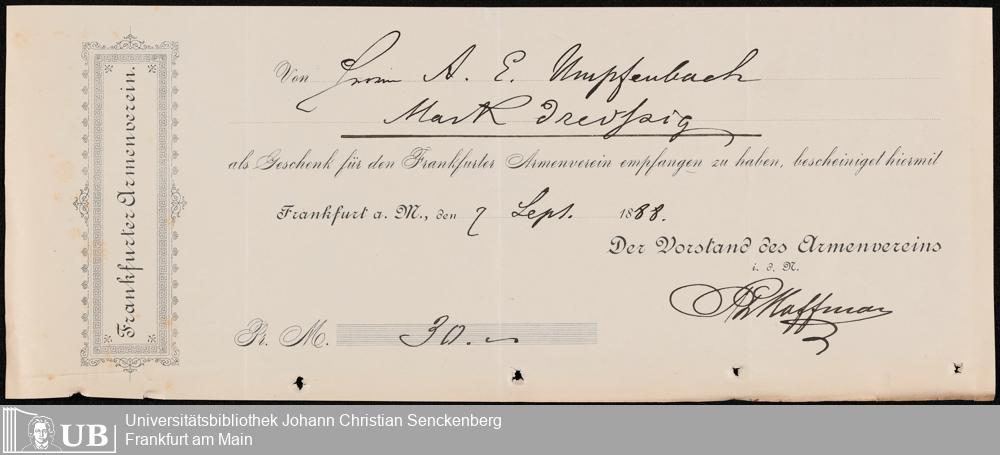 Frankfurter Armenverein.
Von Herrn A. E. Umpfenbach
Mark dreissig
als Geschenk für den Frankfurter Armenverein empfangen zu haben, bescheinigt hiermit
Frankfurt a. M., den 7 Sept. 1888.
Der Vorstand des Armenvereins
i. d. N.
Hoffmann
Pr. M. 30.
UB
Universitätsbibliothek Johann Christian Senckenberg
Frankfurt am Main